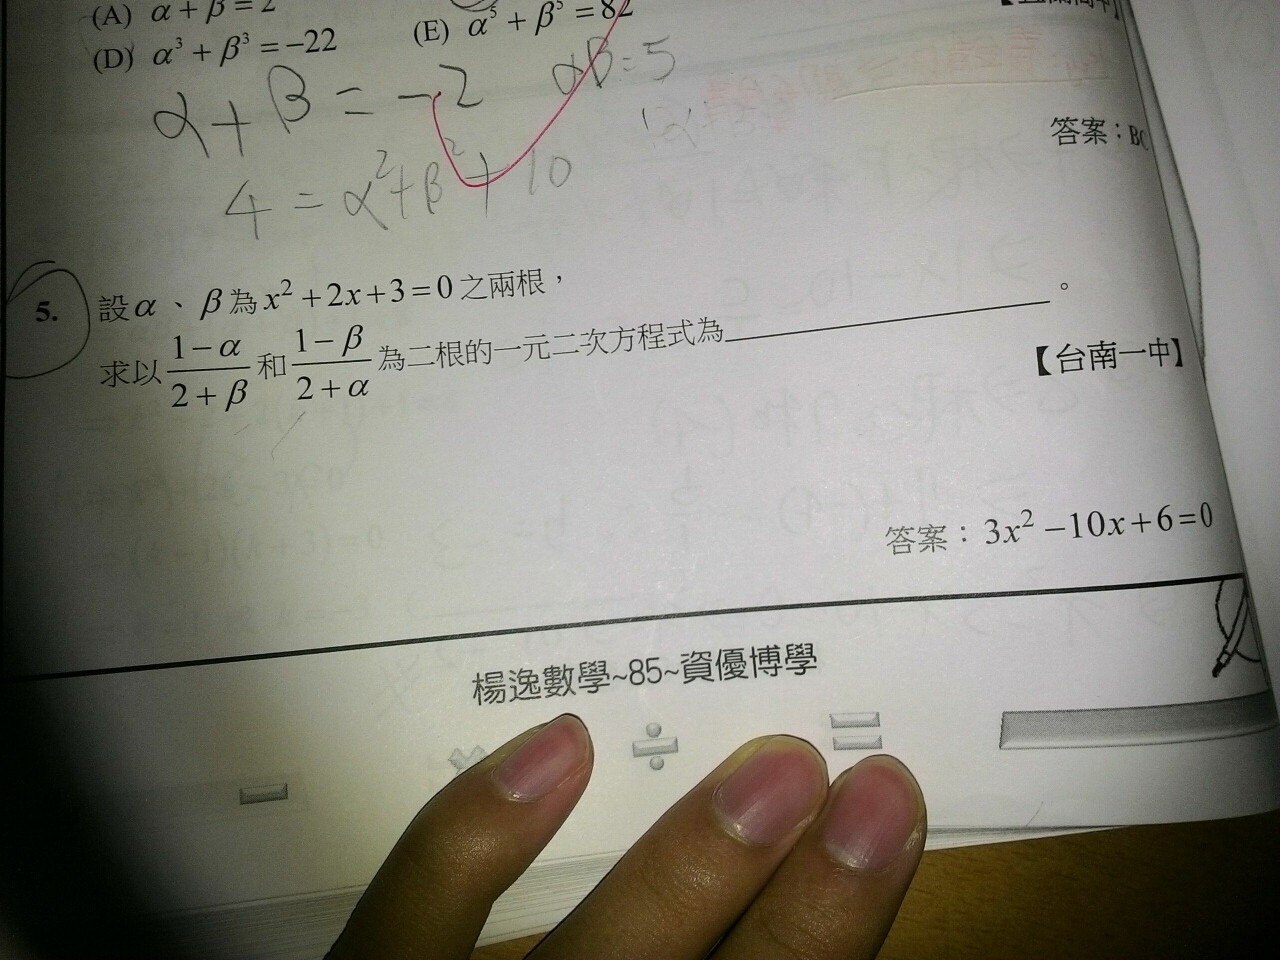 (A) α + β = 2
(D) α³ + β³ = −22 (E) α⁵ + β⁵ = 82
α + β = −2 αβ = 5
4 = α² + β² + 10
答案：BC
5. 設 α 、 β 為 x² + 2x + 3 = 0 之兩根，
求以 (1−α)/(2+β) 和 (1−β)/(2+α) 為二根的一元二次方程式為__________。
【台南一中】
答案：3x² −10x + 6 = 0
楊逸數學~85~資優博學